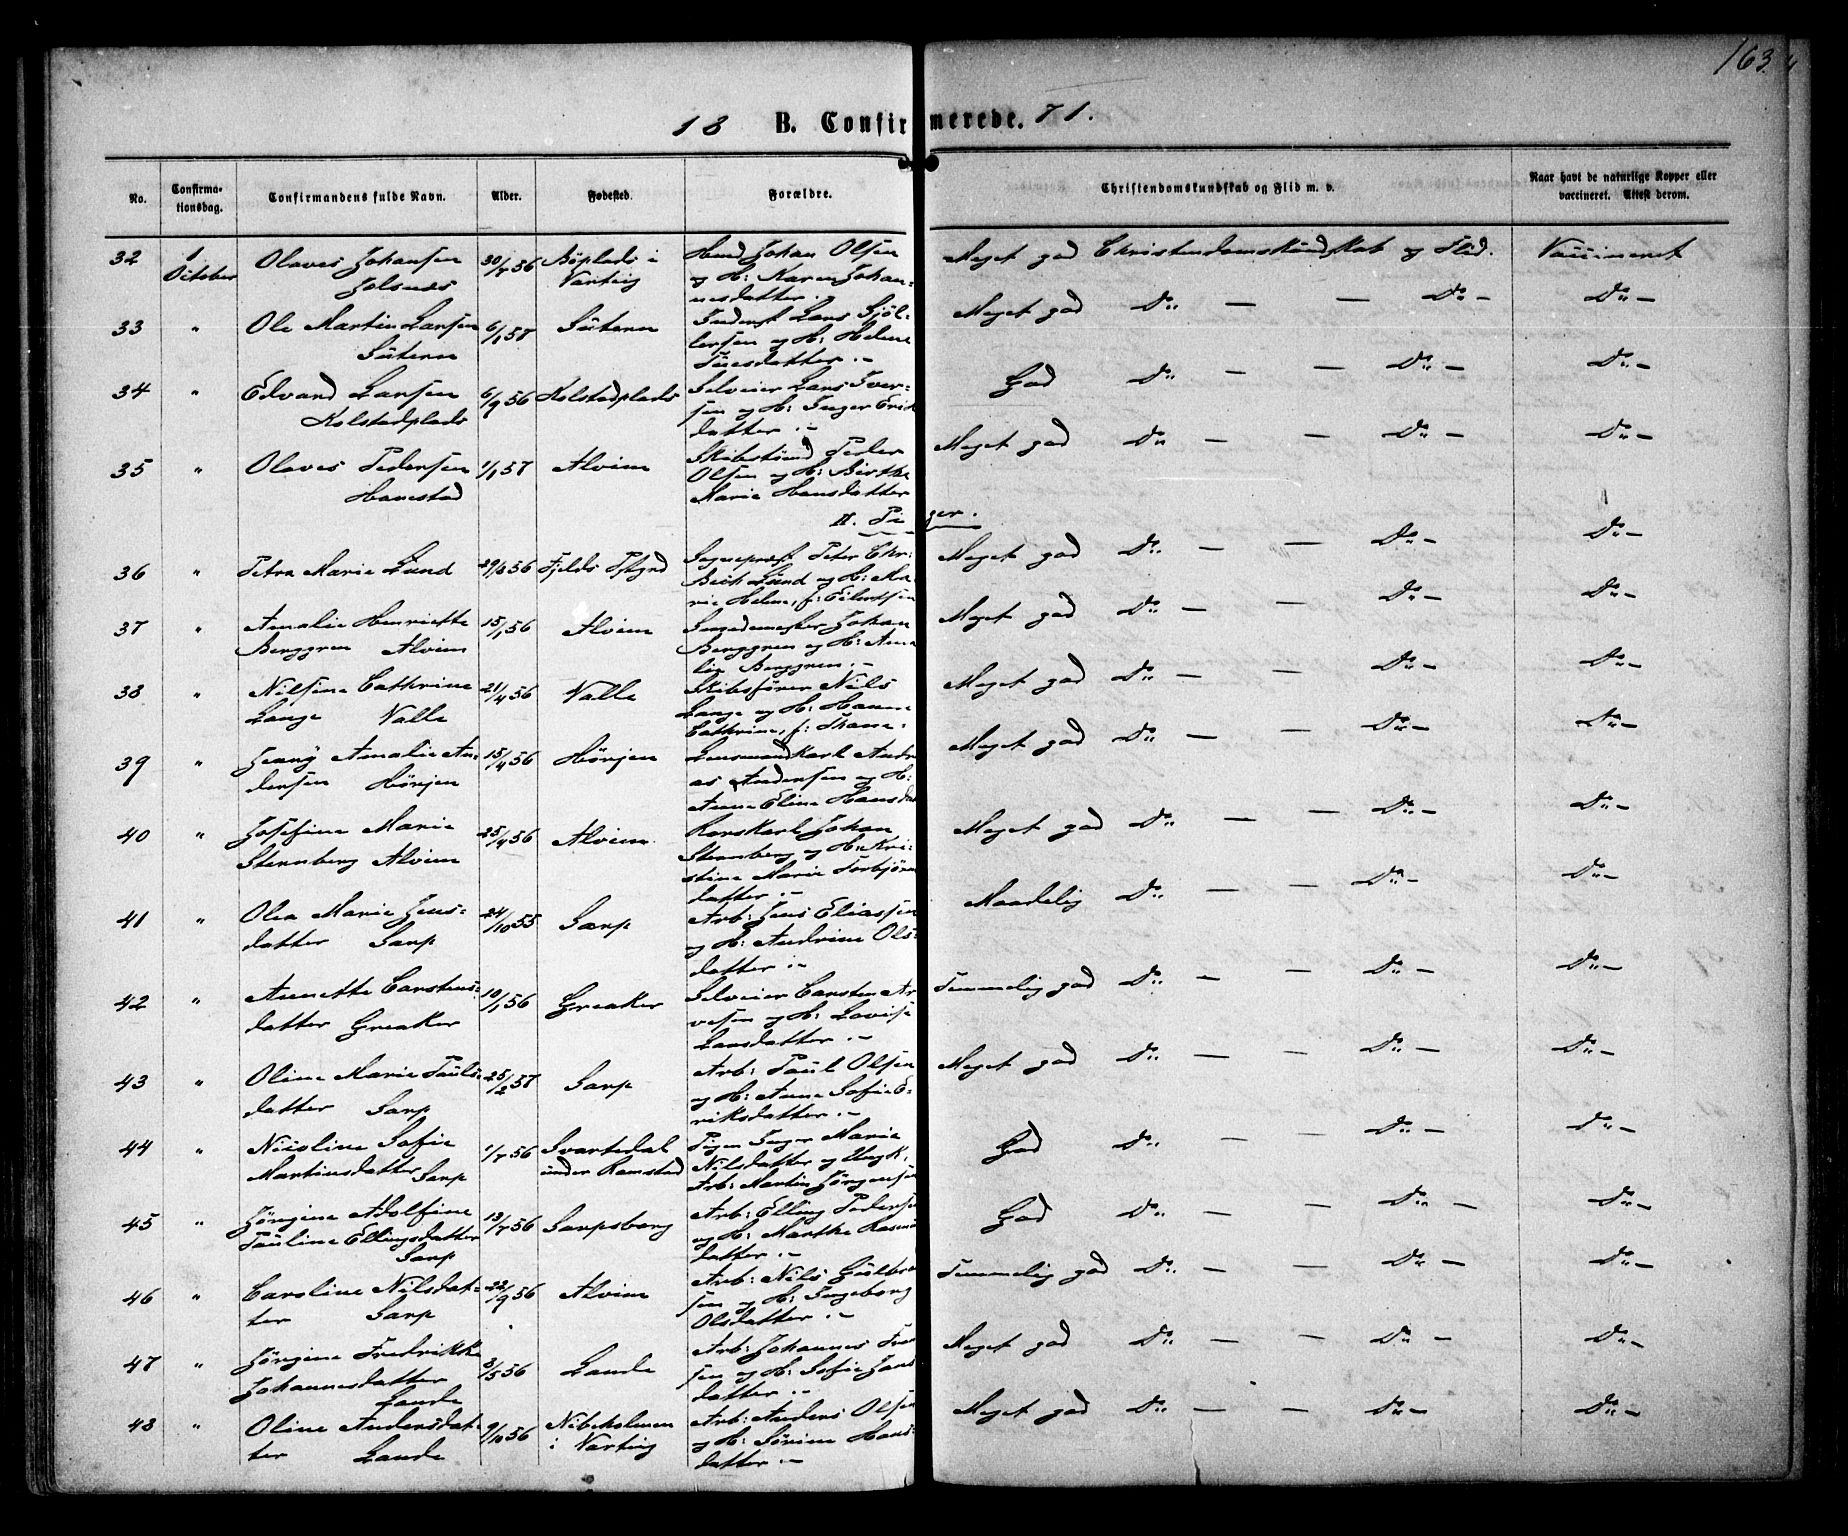 163
18 B. Confirmerede. 71.
No. Confirma-tionsdag. Confirmandens fulde Navn. Alder. Fødested. Forældre. Christendomskundskab og Flid m. v. Naar havt de naturlige Kopper eller vaccineret. Attest derom.
32 1 October Olaves Johansen 30/7 56 i Varteig Johan Olsen og H: Karen Johannesdatter. Meget god Christendomskundskab og Flid. Vaccineret
33 " Ole Martin Larsen 6/1 57 Lars og H: Helene Meget god Do — — Do — Do —
34 " Edvard Larsen Kolstadplads 6/9 56 Kolstadplads Selveier Lars Iversen og H: Inger Erik datter. God Do — — Do — Do —
35 " Olaves Pedersen Hanestad 1/1 57 Alvim Peder Olsen og H: Birthe Marie Hansdatter Meget god Do — — Do — Do —
II. Piger.
36 " Petra Marie Lund 29/6 56 Fjelds Sogneprest Peter Chr: Lund og H: Marie Helene, f: Eilertsen Meget god Do — — Do — Do —
37 " Amalie Henriette Berggren Alvim 15/1 56 Alvim Johan Berggren og H: Amalie Berggren. Meget god Do — — Do — Do —
38 " Nilsine Cathrine Lange Valle 21/4 56 Valle Skibsfører Nils Lange og H: Hanne Cathrine, f: Thane Meget god Do — — Do — Do —
39 " Jenny Amalie Andersen Hørgen 15/4 56 Hørgen Lensmand Karl Andreas Andersen og H: Anne Eline Hansdat Meget god Do — — Do — Do —
40 " Josefine Marie Sternberg Alvim 25/4 56 Alvim Johan Sternberg og H: Kristine Marie Torbjørn datter. Meget god Do — — Do — Do —
41 " Olea Marie Jensdatter Sarp 24/10 55 Sarp Arb: Jens Eliassen og H: Andrine Olsdatter. Maadelig Do — — Do — Do —
42 " Annette Carstensdatter Greaker 10/1 56 Greaker Selveier Carsten Arvesen og H: Lovise Larsdatter. Temmelig god Do — — Do — Do —
43 " Oline Marie Paulsdatter Sarp 25/2 57 Sarp Arb: Paul Olsen og H: Anne Sofie Eriksdatter. Meget god Do — — Do — Do —
44 " Nicoline Sofie Martinsdatter Sarp 1/7 56 Svartedal under Ramstad Pigen Inger Marie Nilsdatter og Ungk: Arb: Martin Jørgensen God Do — — Do — Do —
45 " Jørgine Adolfine Pauline Ellingsdatter Sarp 13/7 56 Sarpsborg Arb: Elling Pedersen og H: Marthe Rasmus datter. God Do — — Do — Do —
46 " Caroline Nilsdatter Sarp 22/9 56 Alvim Arb: Nils Gulbrasen og H: Ingeborg Olsdatter. Temmelig god Do — — Do — Do —
47 " Jørgine Fredrikke Johannesdatter Lande 3/5 56 Lande Arb: Johannes og H: Sofie Jans datter. Meget god Do — — Do — Do —
48 " Oline Andersdatter Lande 9/10 56 i Varteig Arb: Anders Olsen og H: Sørine Hansdatter. Meget god Do — — Do — Do —